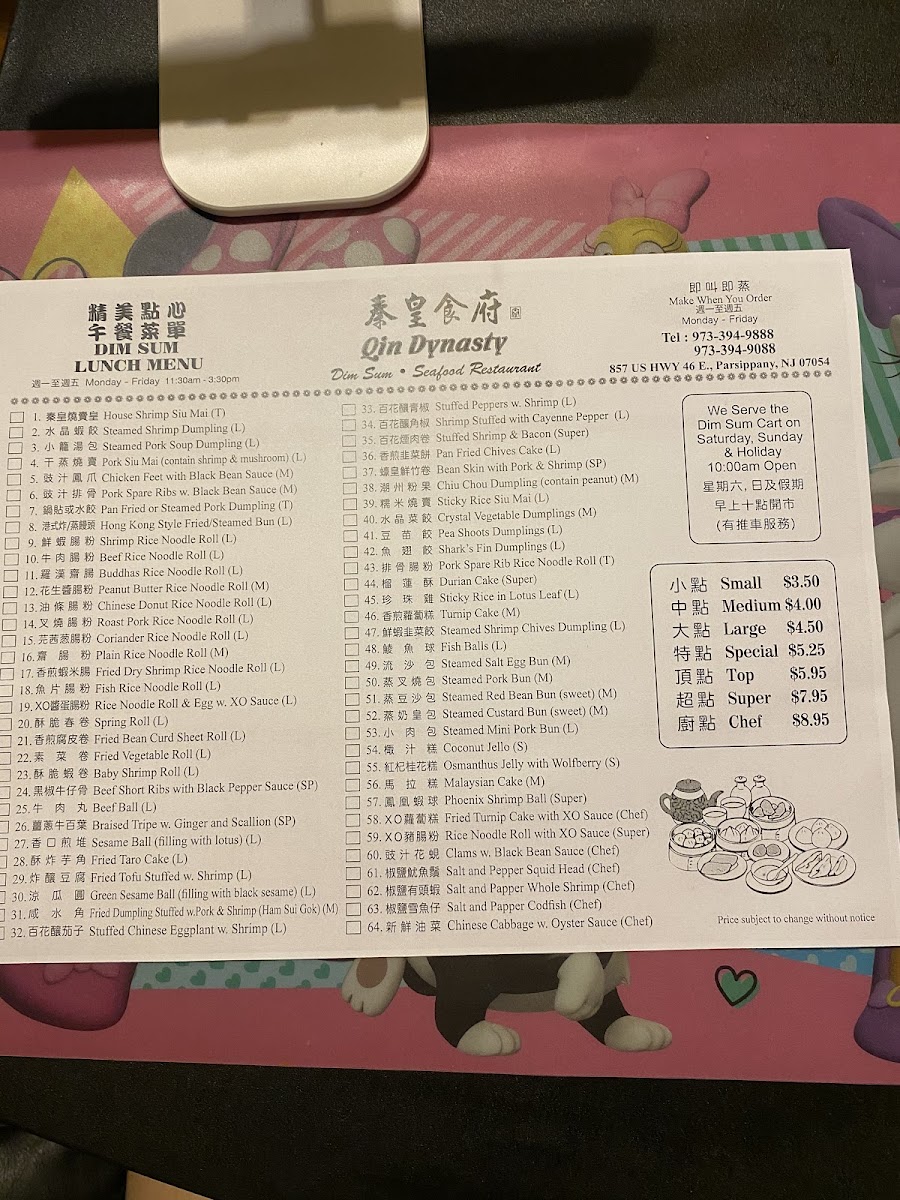 精美點心
午餐菜單
DIM SUM
LUNCH MENU
週一至週五 Monday - Friday 11:30am - 3:30pm
秦皇食府
Qin Dynasty
Dim Sum • Seafood Restaurant
即叫即蒸
Make When You Order
週一至週五
Monday - Friday
Tel : 973-394-9888
973-394-9088
857 US HWY 46 E., Parsippany, NJ 07054
1. 秦皇燒賣皇 House Shrimp Siu Mai (T)
2. 水晶蝦餃 Steamed Shrimp Dumpling (L)
3. 小籠湯包 Steamed Pork Soup Dumpling (L)
4. 干蒸燒賣 Pork Siu Mai (contain shrimp & mushroom) (L)
5. 豉汁鳳爪 Chicken Feet with Black Bean Sauce (M)
6. 豉汁排骨 Pork Spare Ribs w. Black Bean Sauce (M)
7. 鍋貼或水餃 Pan Fried or Steamed Pork Dumpling (T)
8. 港式炸/蒸饅頭 Hong Kong Style Fried/Steamed Bun (L)
9. 鮮蝦腸粉 Shrimp Rice Noodle Roll (L)
10. 牛肉腸粉 Beef Rice Noodle Roll (L)
11. 羅漢齋腸 Buddhas Rice Noodle Roll (L)
12. 花生醬腸粉 Peanut Butter Rice Noodle Roll (M)
13. 油條腸粉 Chinese Donut Rice Noodle Roll (L)
14. 叉燒腸粉 Roast Pork Rice Noodle Roll (L)
15. 芫茜葱腸粉 Coriander Rice Noodle Roll (L)
16. 齋腸粉 Plain Rice Noodle Roll (M)
17. 香煎蝦米腸 Fried Dry Shrimp Rice Noodle Roll (L)
18. 魚片腸粉 Fish Rice Noodle Roll (L)
19. XO醬蛋腸粉 Rice Noodle Roll & Egg w. XO Sauce (L)
20. 酥脆春卷 Spring Roll (L)
21. 香煎腐皮卷 Fried Bean Curd Sheet Roll (L)
22. 素菜卷 Fried Vegetable Roll (L)
23. 酥脆蝦卷 Baby Shrimp Roll (L)
24. 黑椒牛仔骨 Beef Short Ribs with Black Pepper Sauce (SP)
25. 牛肉丸 Beef Ball (L)
26. 薑蔥牛百葉 Braised Tripe w. Ginger and Scallion (SP)
27. 香口煎堆 Sesame Ball (filling with lotus) (L)
28. 酥炸芋角 Fried Taro Cake (L)
29. 炸釀豆腐 Fried Tofu Stuffed w. Shrimp (L)
30. 涼瓜圓 Green Sesame Ball (filling with black sesame) (L)
31. 咸水角 Fried Dumpling Stuffed w.Pork & Shrimp (Ham Sui Gok) (M)
32. 百花釀茄子 Stuffed Chinese Eggplant w. Shrimp (L)
33. 百花釀青椒 Stuffed Peppers w. Shrimp (L)
34. 百花釀角椒 Shrimp Stuffed with Cayenne Pepper (L)
35. 百花煙肉卷 Stuffed Shrimp & Bacon (Super)
36. 香煎韭菜餅 Pan Fried Chives Cake (L)
37. 蠔皇鮮竹卷 Bean Skin with Pork & Shrimp (SP)
38. 潮州粉果 Chiu Chou Dumpling (contain peanut) (M)
39. 糯米燒賣 Sticky Rice Siu Mai (L)
40. 水晶菜餃 Crystal Vegetable Dumplings (M)
41. 豆苗餃 Pea Shoots Dumplings (L)
42. 魚翅餃 Shark's Fin Dumplings (L)
43. 排骨腸粉 Pork Spare Rib Rice Noodle Roll (T)
44. 榴蓮酥 Durian Cake (Super)
45. 珍珠雞 Sticky Rice in Lotus Leaf (L)
46. 香煎蘿蔔糕 Turnip Cake (M)
47. 鮮蝦韭菜餃 Steamed Shrimp Chives Dumpling (L)
48. 鯪魚球 Fish Balls (L)
49. 流沙包 Steamed Salt Egg Bun (M)
50. 蒸叉燒包 Steamed Pork Bun (M)
51. 蒸豆沙包 Steamed Red Bean Bun (sweet) (M)
52. 蒸奶皇包 Steamed Custard Bun (sweet) (M)
53. 小肉包 Steamed Mini Pork Bun (L)
54. 椰汁糕 Coconut Jello (S)
55. 紅杞桂花糕 Osmanthus Jelly with Wolfberry (S)
56. 馬拉糕 Malaysian Cake (M)
57. 鳳凰蝦球 Phoenix Shrimp Ball (Super)
58. XO蘿蔔糕 Fried Turnip Cake with XO Sauce (Chef)
59. XO豬腸粉 Rice Noodle Roll with XO Sauce (Super)
60. 豉汁花蜆 Clams w. Black Bean Sauce (Chef)
61. 椒鹽魷魚鬚 Salt and Pepper Squid Head (Chef)
62. 椒鹽有頭蝦 Salt and Papper Whole Shrimp (Chef)
63. 椒鹽雪魚仔 Salt and Papper Codfish (Chef)
64. 新鮮油菜 Chinese Cabbage w. Oyster Sauce (Chef)
We Serve the
Dim Sum Cart on
Saturday, Sunday
& Holiday
10:00am Open
星期六, 日及假期
早上十點開市
(有推車服務)
小點 Small $3.50
中點 Medium $4.00
大點 Large $4.50
特點 Special $5.25
頂點 Top $5.95
超點 Super $7.95
廚點 Chef $8.95
Price subject to change without notice